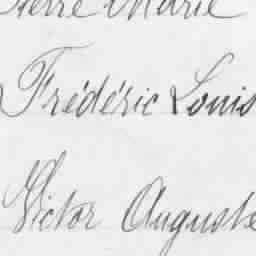 Pierre Marie
Frédéric Louis
Victor Auguste